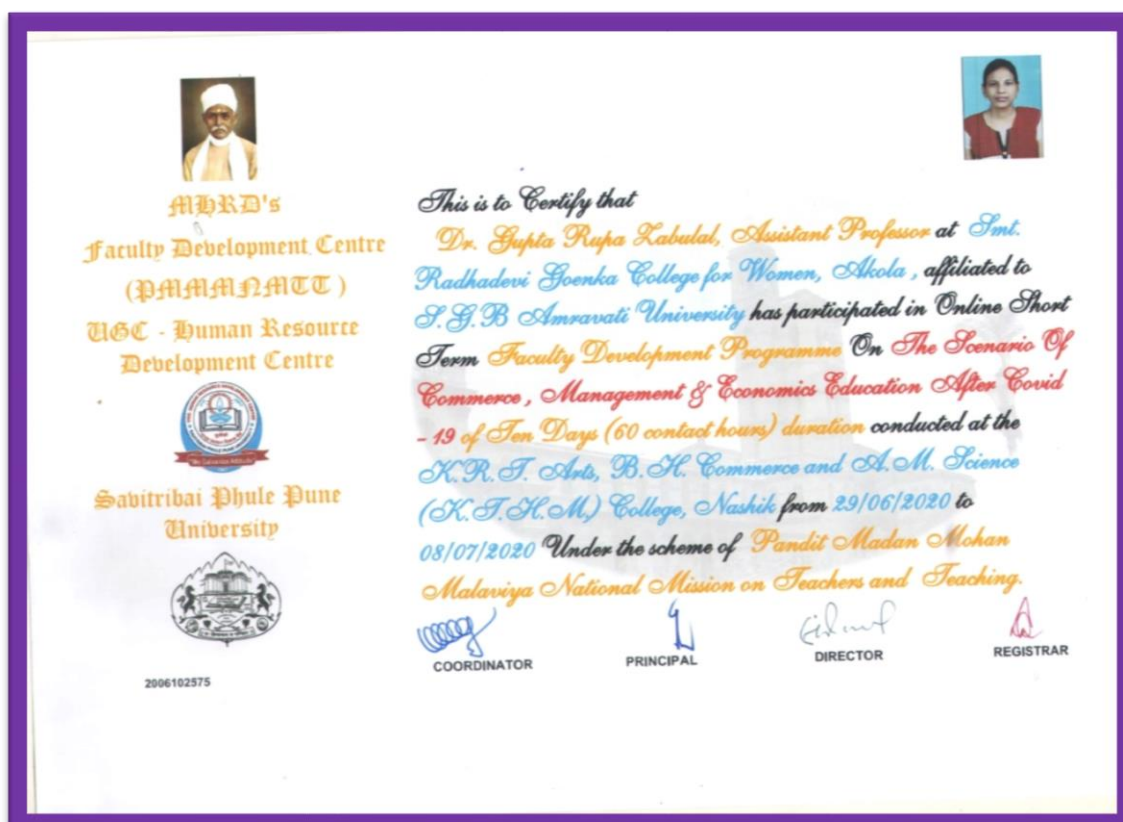 MHRD's
Faculty Development Centre
(PMMMNMTT)
UGC - Human Resource
Development Centre
Savitribai Phule Pune
University
2006102575
This is to Certify that
Dr. Gupta Rupa Zabulal, Assistant Professor at Smt.
Radhadevi Goenka College for Women, Akola , affiliated to
S.G.B Amravati University has participated in Online Short
Term Faculty Development Programme On The Scenario Of
Commerce , Management & Economics Education After Covid
- 19 of Ten Days (60 contact hours) duration conducted at the
K.R.T. Arts, B.H. Commerce and A.M. Science
(K.T.H.M.) College, Nashik from 29/06/2020 to
08/07/2020 Under the scheme of Pandit Madan Mohan
Malaviya National Mission on Teachers and Teaching.
COORDINATOR
PRINCIPAL
DIRECTOR
REGISTRAR